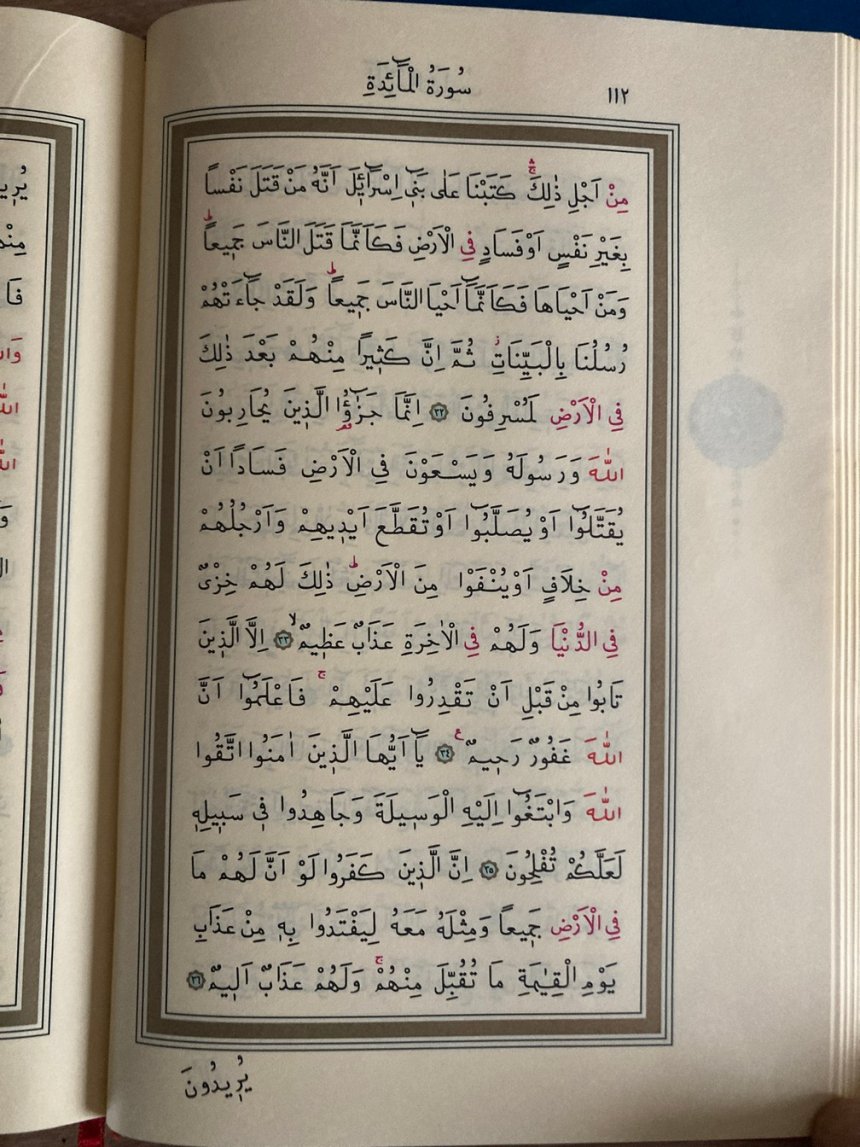 سُورَةُ الْمَٓائِدَةِ
١١٢
مِنْ اَجْلِ ذٰلِكَۚۛ كَتَبْنَا عَلٰى بَنٖٓى اِسْرَٓائٖلَ اَنَّهُ مَنْ قَتَلَ نَفْساً
بِغَيْرِ نَفْسٍ اَوْ فَسَادٍ فِى الْاَرْضِ فَكَاَنَّمَا قَتَلَ النَّاسَ جَمٖيعاًۜ
وَمَنْ اَحْيَاهَا فَكَاَنَّمَٓا اَحْيَا النَّاسَ جَمٖيعاًۜ وَلَقَدْ جَٓاءَتْهُمْ
رُسُلُنَا بِالْبَيِّنَاتِؗ ثُمَّ اِنَّ كَثٖيراً مِنْهُمْ بَعْدَ ذٰلِكَ
فِى الْاَرْضِ لَمُسْرِفُونَ ٣٢ اِنَّمَا جَزٰٓؤُا الَّذٖينَ يُحَارِبُونَ
اللّٰهَ وَرَسُولَهُ وَيَسْعَوْنَ فِى الْاَرْضِ فَسَاداً اَنْ
يُقَتَّلُٓوا اَوْ يُصَلَّبُٓوا اَوْ تُقَطَّعَ اَيْدٖيهِمْ وَاَرْجُلُهُمْ
مِنْ خِلَافٍ اَوْ يُنْفَوْا مِنَ الْاَرْضِۜ ذٰلِكَ لَهُمْ خِزْىٌ
فِى الدُّنْيَا وَلَهُمْ فِى الْاٰخِرَةِ عَذَابٌ عَظٖيمٌۙ ٣٣ اِلَّا الَّذٖينَ
تَابُوا مِنْ قَبْلِ اَنْ تَقْدِرُوا عَلَيْهِمْۚ فَاعْلَمُٓوا اَنَّ
اللّٰهَ غَفُورٌ رَحٖيمٌ ٣٤ ع يَٓا اَيُّهَا الَّذٖينَ اٰمَنُوا اتَّقُوا
اللّٰهَ وَابْتَغُٓوا اِلَيْهِ الْوَسٖيلَةَ وَجَاهِدُوا فٖى سَبٖيلِهٖ
لَعَلَّكُمْ تُفْلِحُونَ ٣٥ اِنَّ الَّذٖينَ كَفَرُوا لَوْ اَنَّ لَهُمْ مَا
فِى الْاَرْضِ جَمٖيعاً وَمِثْلَهُ مَعَهُ لِيَفْتَدُوا بِهٖ مِنْ عَذَابِ
يَوْمِ الْقِيٰمَةِ مَا تُقُبِّلَ مِنْهُمْۚ وَلَهُمْ عَذَابٌ اَلٖيمٌ ٣٦
يُرٖيدُونَ